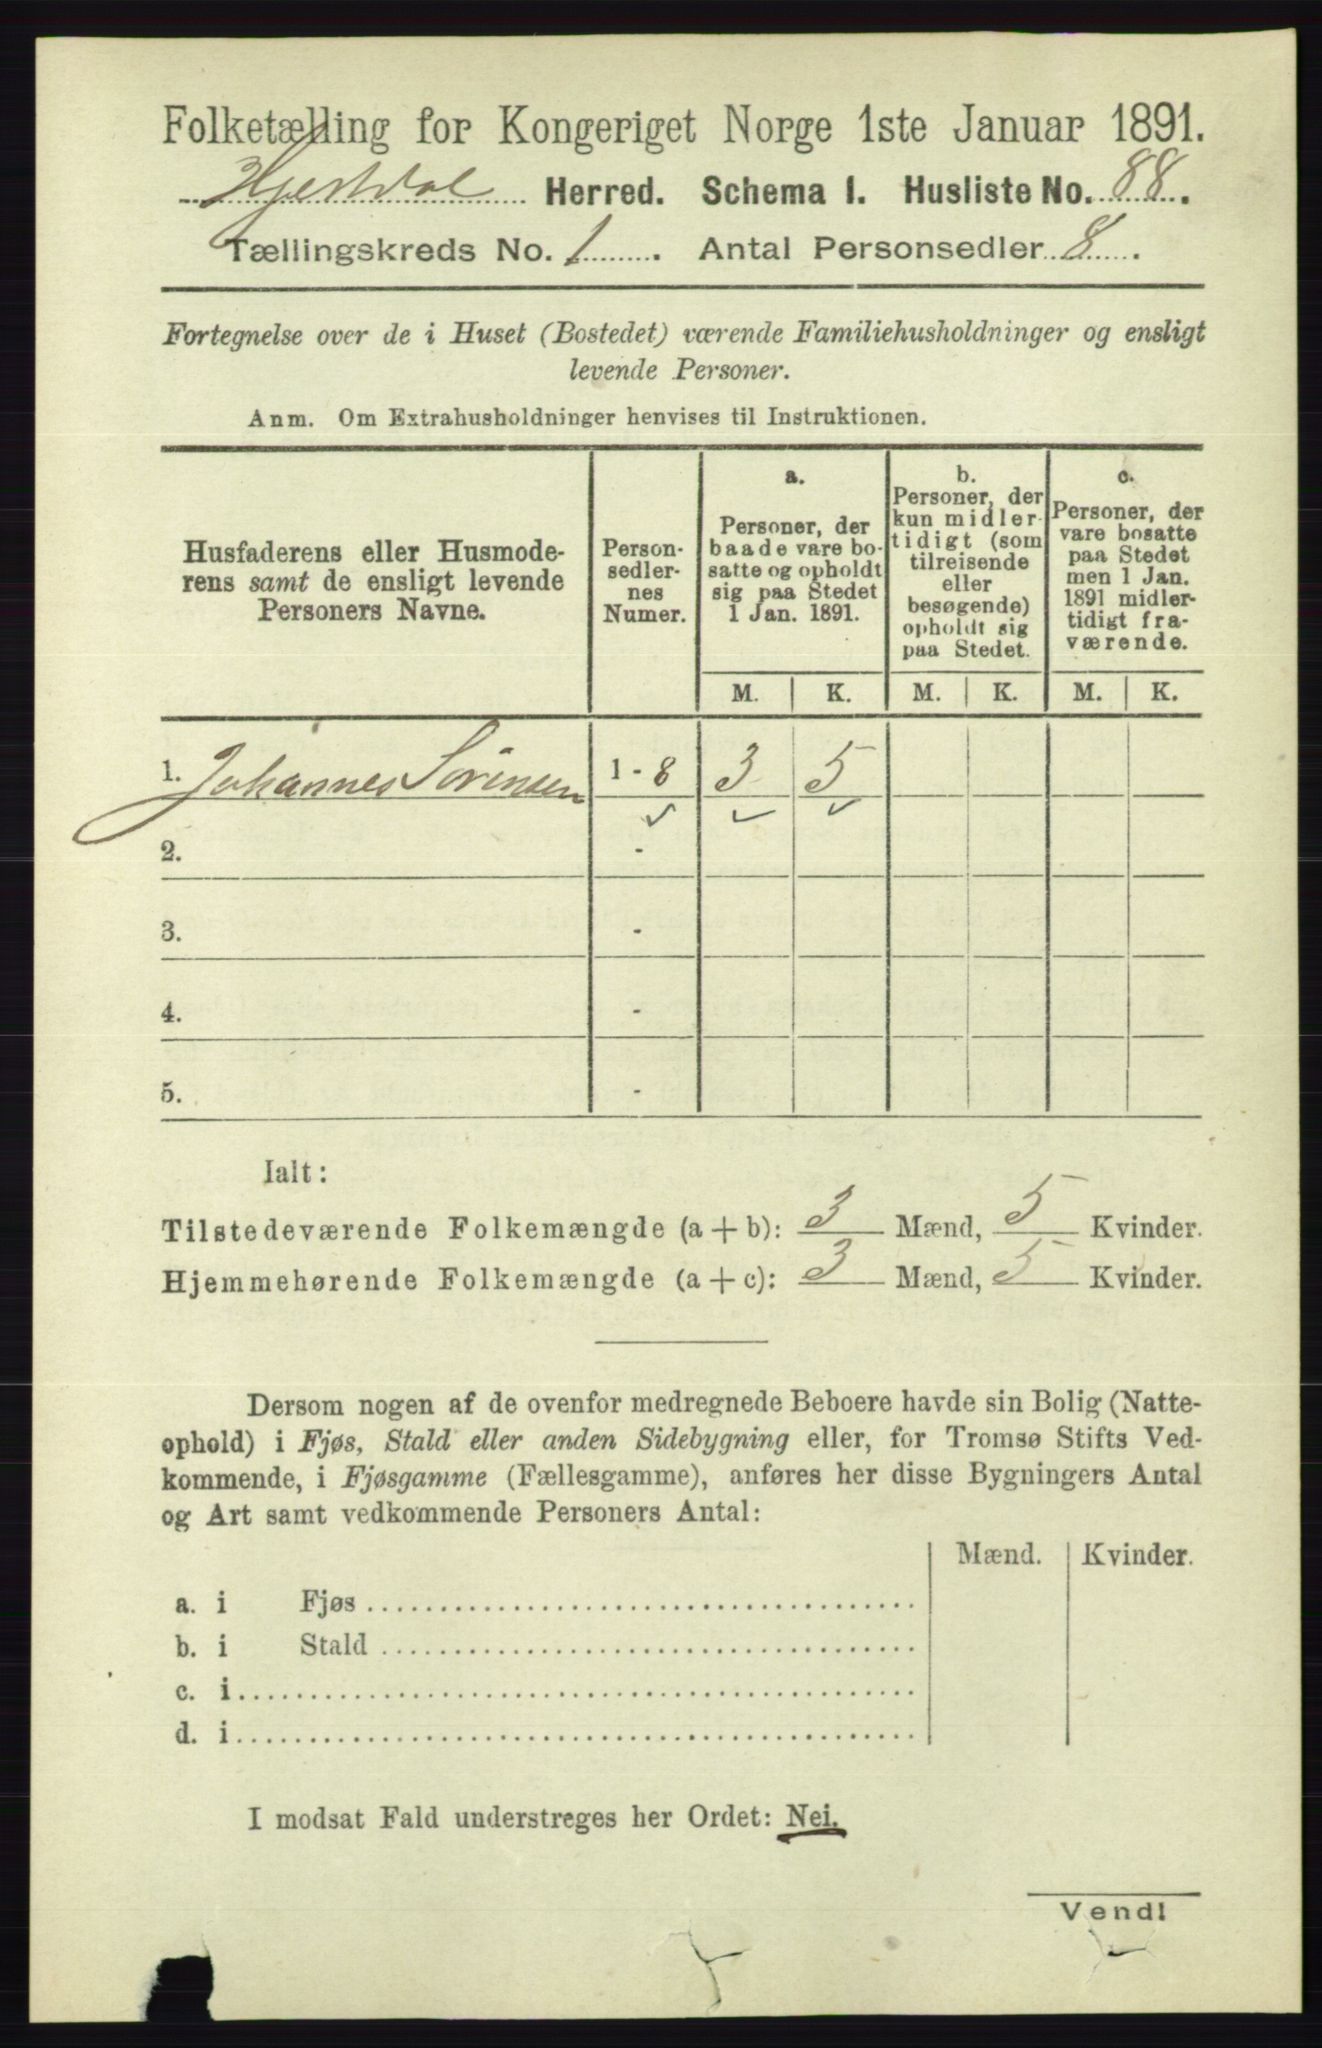 Folketælling for Kongeriget Norge 1ste Januar 1891.
Hjertdal Herred. Schema 1. Husliste No. 88.
Tællingskreds No. 1. Antal Personsedler 8.
Fortegnelse over de i Huset (Bostedet) værende Familiehusholdninger og ensligt
levende Personer.
Anm. Om Extrahusholdninger henvises til Instruktionen.
Husfaderens eller Husmode-
rens samt de ensligt levende
Personers Navne.
Person-
sedler-
nes
Numer.
a.
Personer, der
baade vare bo-
satte og opholdt
sig paa Stedet
1 Jan. 1891.
b.
Personer, der
kun midler-
tidigt (som
tilreisende
eller
besøgende)
opholdt sig
paa Stedet.
c.
Personer, der
vare bosatte
paa Stedet
men 1 Jan.
1891 midler-
tidigt fra-
værende.
M. K. M. K. M. K.
1. Johannes Sörensen 1 - 8 3 5
2. -
3. -
4. -
5. -
Ialt:
Tilstedeværende Folkemængde (a + b): 3 Mænd, 5 Kvinder.
Hjemmehørende Folkemængde (a + c): 3 Mænd, 5 Kvinder.
Dersom nogen af de ovenfor medregnede Beboere havde sin Bolig (Natte-
ophold) i Fjøs, Stald eller anden Sidebygning eller, for Tromsø Stifts Ved-
kommende, i Fjøsgamme (Fællesgamme), anføres her disse Bygningers Antal
og Art samt vedkommende Personers Antal:
Mænd. Kvinder.
a. i Fjøs
b. i Stald
c. i
d. i
I modsat Fald understreges her Ordet: Nei.
Vend!